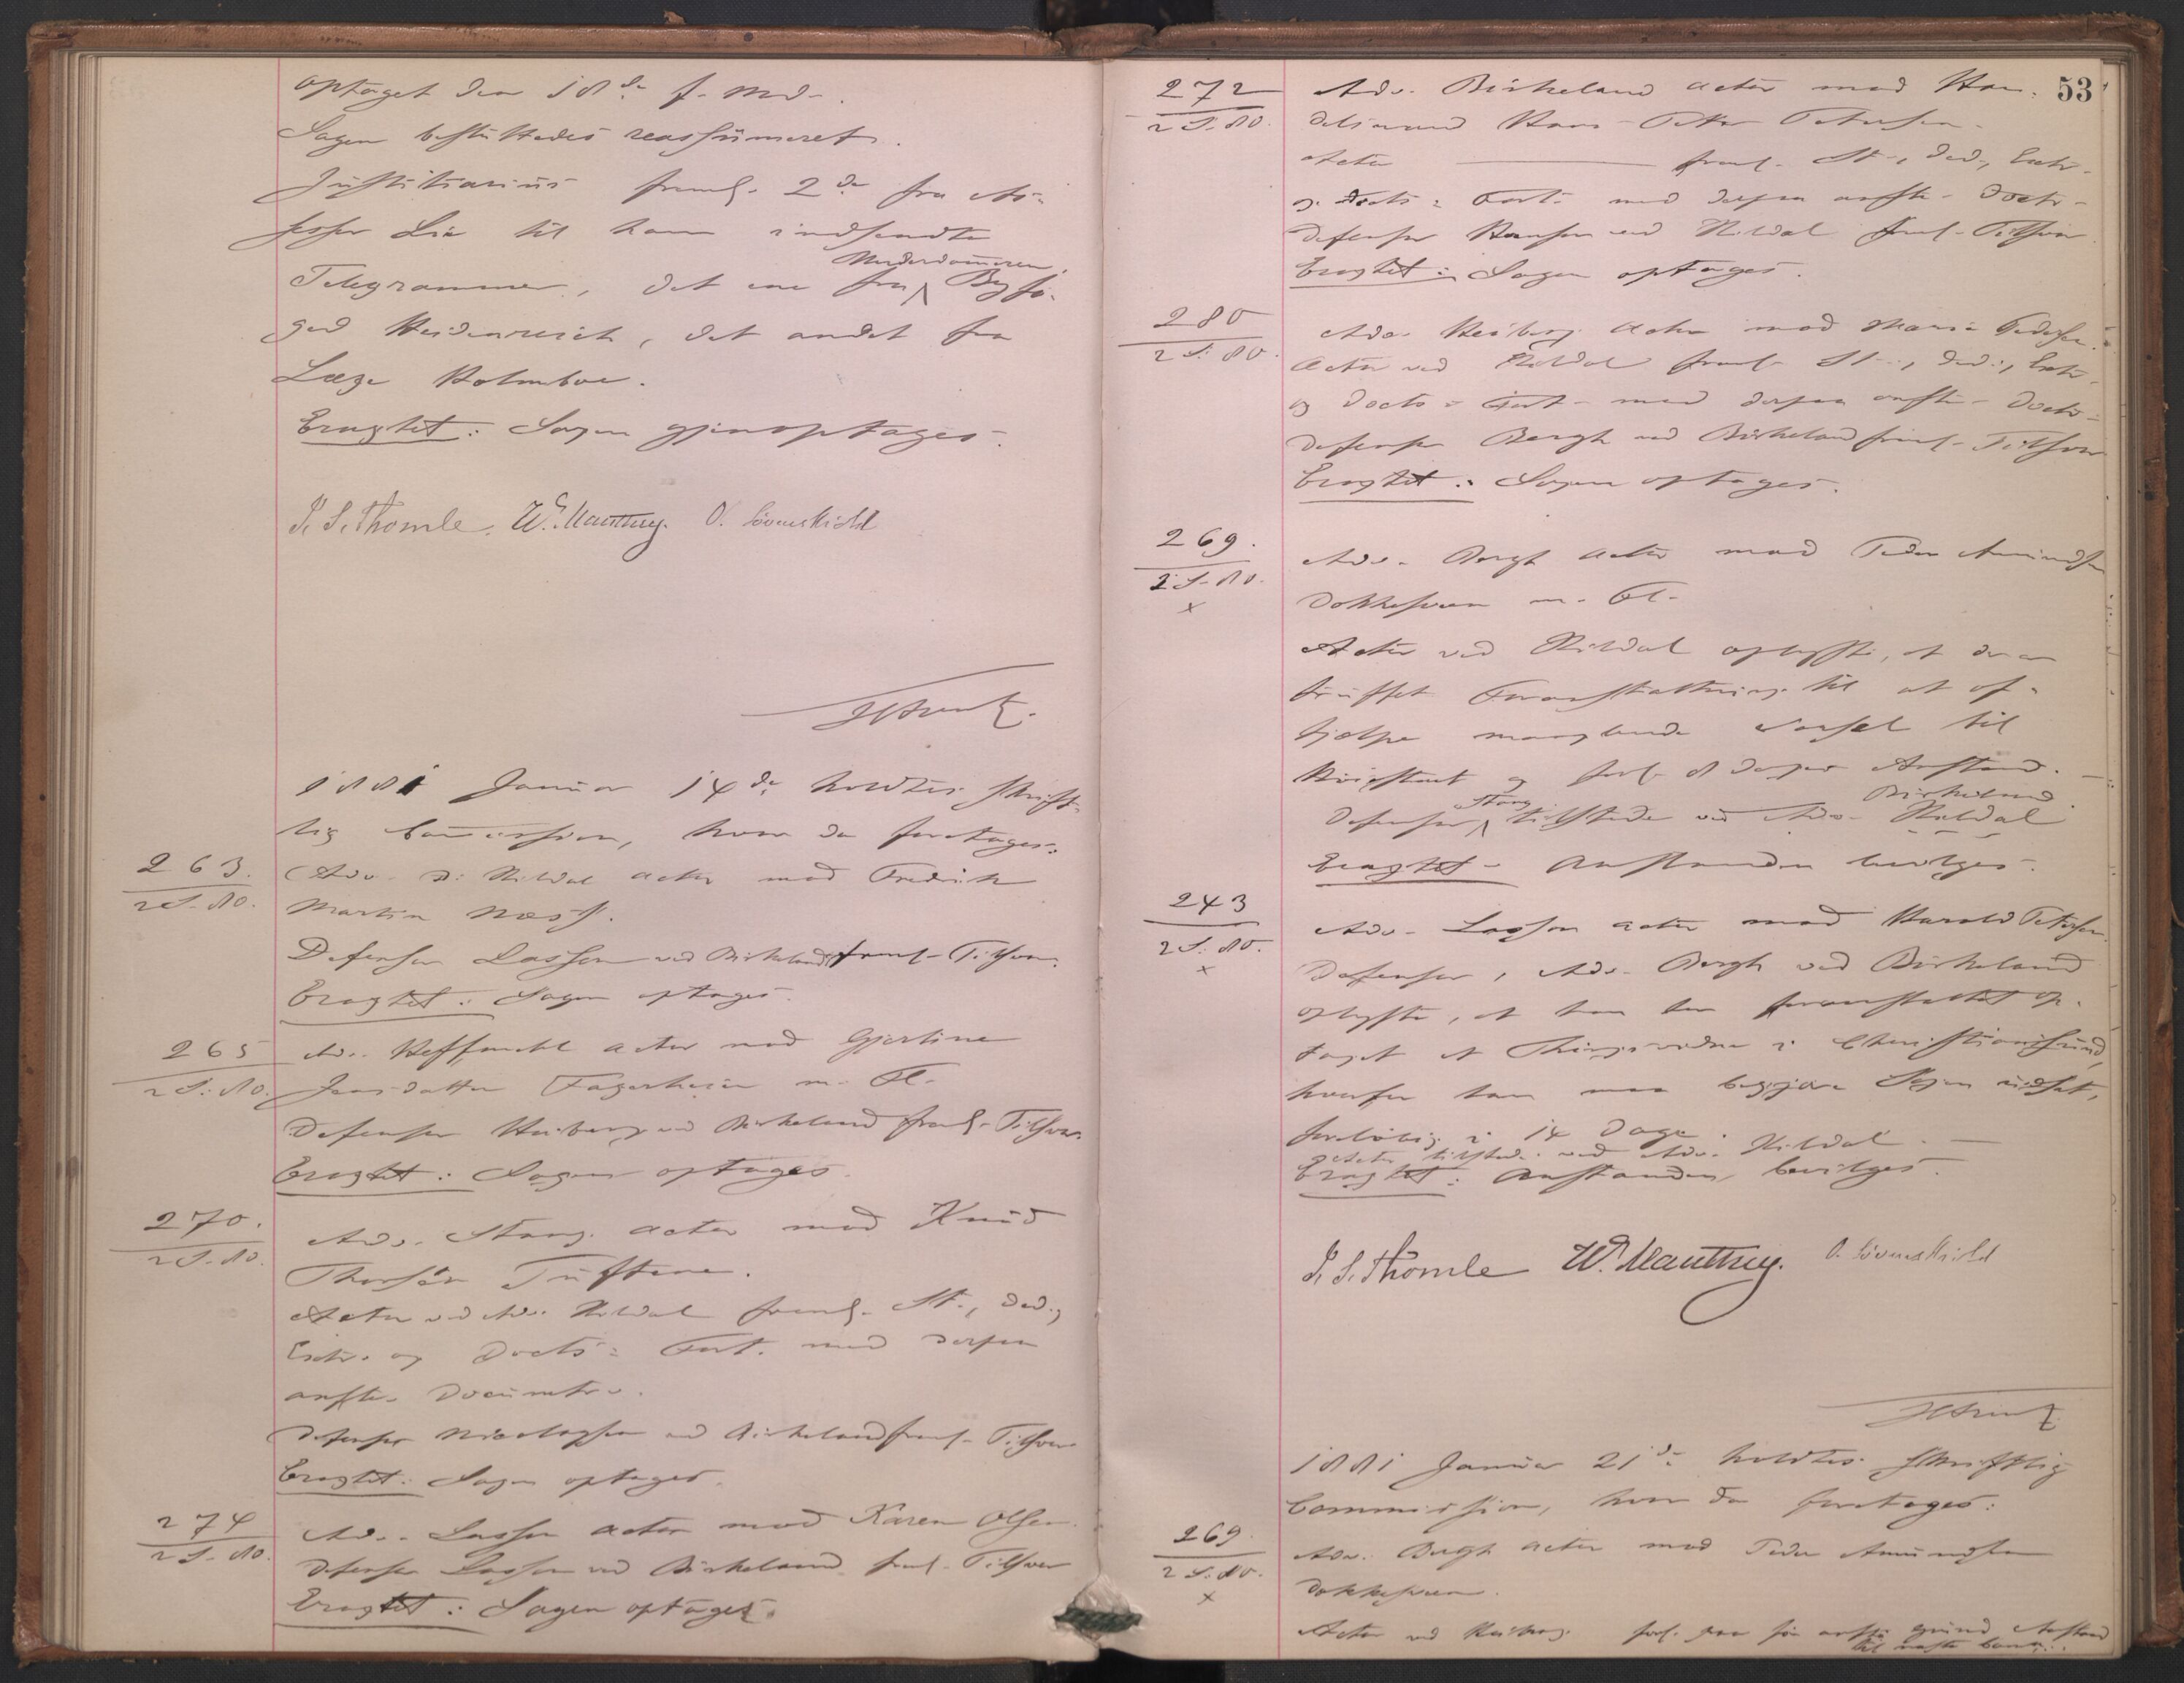 optaget den 18de f. Md.
Sagen besluttedes reassumeret.
Justitiarius freml. 2de fra As-
sessor Lie til ham indsendte
Telegrammer, det ene fra Underdommeren Byfo-
ged Heidenreich, det andet fra
Læge Holmboe.
Eragtet: Sagen gjenoptages.
P. S. Thomle. W. Manthey. O. Løvenskiold
1881 Januar 14de holdtes skrift-
lig Commission, hvor da foretages:
263.
2 S. 80.
Adv. Kildal actor mod Fredrik
Martin Næss.
Defensor Lasson ved Birkeland freml. Tilsvar.
Eragtet: Sagen optages.
265
2 S. 80.
Adv. actor mod Gjertine
Jensdatter Fagerheim m. Fl.
Defensor Heiberg ved Birkeland freml. Tilsvar.
Eragtet: Sagen optages.
270.
2 S. 80.
Adv. Stang actor mod Knud
Tuftene.
Actor ved Adv. Kildal freml. St., Ded.,
Extr. og Docts= Fort. med derpaa
anfte. Documenter.
Defensor Nicolaysen ved Birkeland freml. Tilsvar
Eragtet: Sagen optages.
274
2 S. 80.
Adv. Lasson actor mod Karen Olsen.
Defensor Lasson ved Birkeland freml. Tilsvar
Eragtet: Sagen optages.
53
272
2 S. 80.
Adv. Birkeland actor mod Han-
delsmand Hans Peter Petersen.
Actor freml. St., Ded., Extr.
og Docts= Fort. med derpaa anfte. Doctr.
Defensor Hansen ved Kildal freml. Tilsvar.
Eragtet: Sagen optages.
280
2 S. 80.
Adv. Heiberg actor mod Maria Pedersen.
Actor ved Kildal freml. St., Ded., Extr.
og Docts= Fort. med derpaa anfte. Doctr.
Defensor Bergh ved Birkeland freml. Tilsvar
Eragtet: Sagen optages.
269.
2 S. 80.
x
Adv. Bergh actor mod Peder Amundsen
Dokkesveen m. Fl.
Actor ved Kildal oplyste, at der er
truffet Foranstaltning til at af-
hjelpe manglende Varsel til
og forl. 8 Dages Anstand.
Defensor Stang tilstede ved Adv. Kildal Birkeland.
Eragtet: Anstanden bevilges.
243
2 S. 80.
x
Adv. Lasson actor mod Harald Petersen.
Defensor, Adv. Bergh ved Birkeland
oplyste, at han har foranstaltet op-
taget et Thingsvidne i Christianssund,
hvorfor han maa begjære Sagen udsat,
foreløbig i 14 Dage.
Actor tilstede ved Adv. Kildal.
Eragtet: Anstanden bevilges.
P. S. Thomle W. Manthey. O. Løvenskiold
1881 Januar 21de holdtes skriftlig
Commission, hvor da foretages:
269.
2 S. 80.
x
Adv. Bergh actor mod Peder Amundsen
Dokkesveen.
Actor ved Heiberg forl. paa før anført Grund Anstand
til næste Comm.